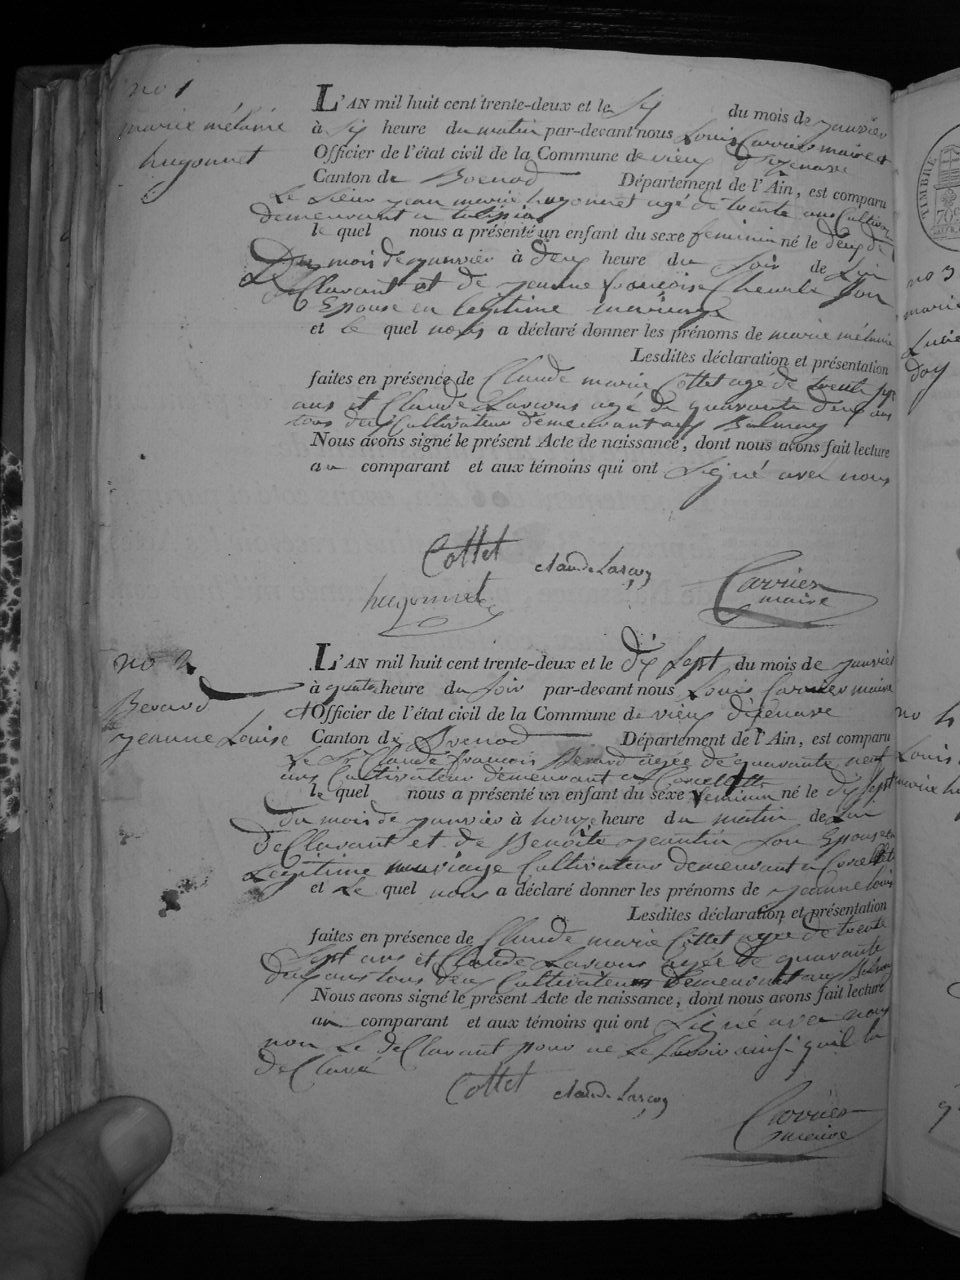 no 1
marie mélanie
hugonnet
L'AN mil huit cent trente-deux et le six du mois de janvier
à six heure du matin par-devant nous Louis Carrier maire et
Officier de l'état civil de la Commune de vieux d'izenave
Canton de Brenod Département de l'Ain, est comparu
Le Sieur jean marie hugonnet agé de trente ans Cultiv
demeurant a
le quel nous a présenté un enfant du sexe feminin né le deux de
Du mois de janvier à deux heure du soir de Lui
déClarant et de jeanne françoise Chevalet Son
Epouse en legitime mariage
et le quel nous a déclaré donner les prénoms de marie mélanie
Lesdites déclaration et présentation
faites en présence de Claude marie Cottet agé de trente sept
ans et Claude Larçons agé de quarante deux ans
tous deux Cultivateur demeurant aux Balmay
Nous avons signé le présent Acte de naissance, dont nous avons fait lecture
au comparant et aux témoins qui ont Signé avec nous
Cottet
claude Larçon
hugonnet
Carrier
maire
no 2
Berard
jeanne Louise
L'AN mil huit cent trente-deux et le dix Sept du mois de janvier
à quatre heure du Soir par-devant nous Louis Carrier maire
et Officier de l'état civil de la Commune de vieux d'izenave
Canton de Brenod Département de l'Ain, est comparu
Le Sr Claude françois Berard agée de quarante neuf
ans Cultivateur demeurant a Corcelette
le quel nous a présenté un enfant du sexe feminin né le dix sept
Du mois de janvier à honze heure du matin de Lui
déClarant et de Benoite jeantin Son Epouse en
Legitime mariage Cultivateur demeurant a Corcelette
et Le quel nous a déclaré donner les prénoms de jeanne louise
Lesdites déclaration et présentation
faites en présence de Claude marie Cottet agée de trente
Sept ans et Claude Larçons agée de quarante
deux ans tous deux Cultivateur demeurant aux Balmay
Nous avons signé le présent Acte de naissance, dont nous avons fait lecture
au comparant et aux témoins qui ont Signé avec nous
non Le déClarant pour ne Le Savoir ainsi quil la
déClaré
Cottet
claude Larçon
Carrier
maire
TIMBRE
no 3
marie
Lucie
doy
no 4
Louis
marie hu